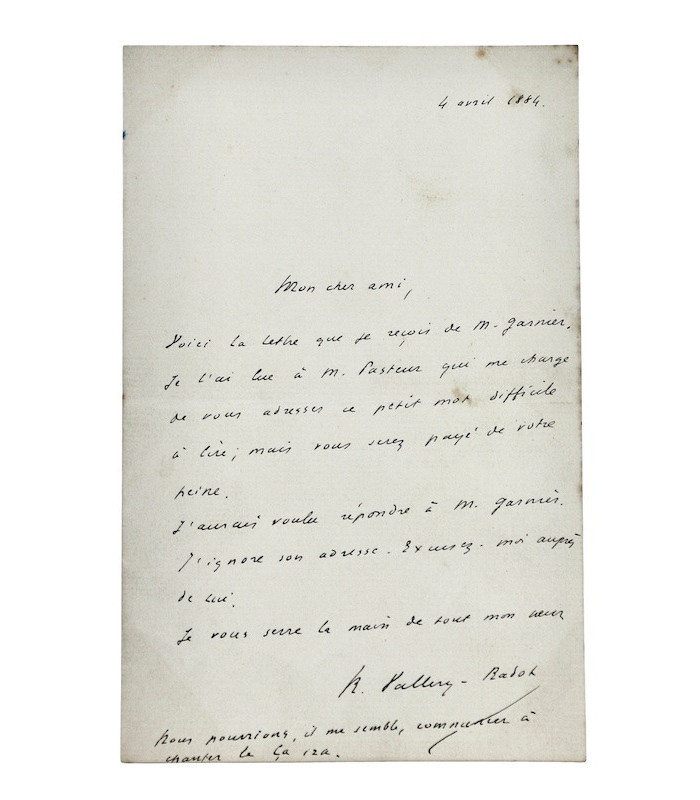 4 avril 1884.
Mon cher ami,
Voici la lettre que je reçois de M. Garnier.
Je l'ai lue à M. Pasteur qui me charge
de vous adresser ce petit mot difficile
à lire; mais vous serez payé de votre
peine.
J'aurais voulu répondre à M. Garnier.
J'ignore son adresse. Excusez-moi auprès
de lui.
Je vous serre la main de tout mon cœur
R. Vallery-Radot
Nous pourrions, il me semble, commencer à
chanter le Ça ira.